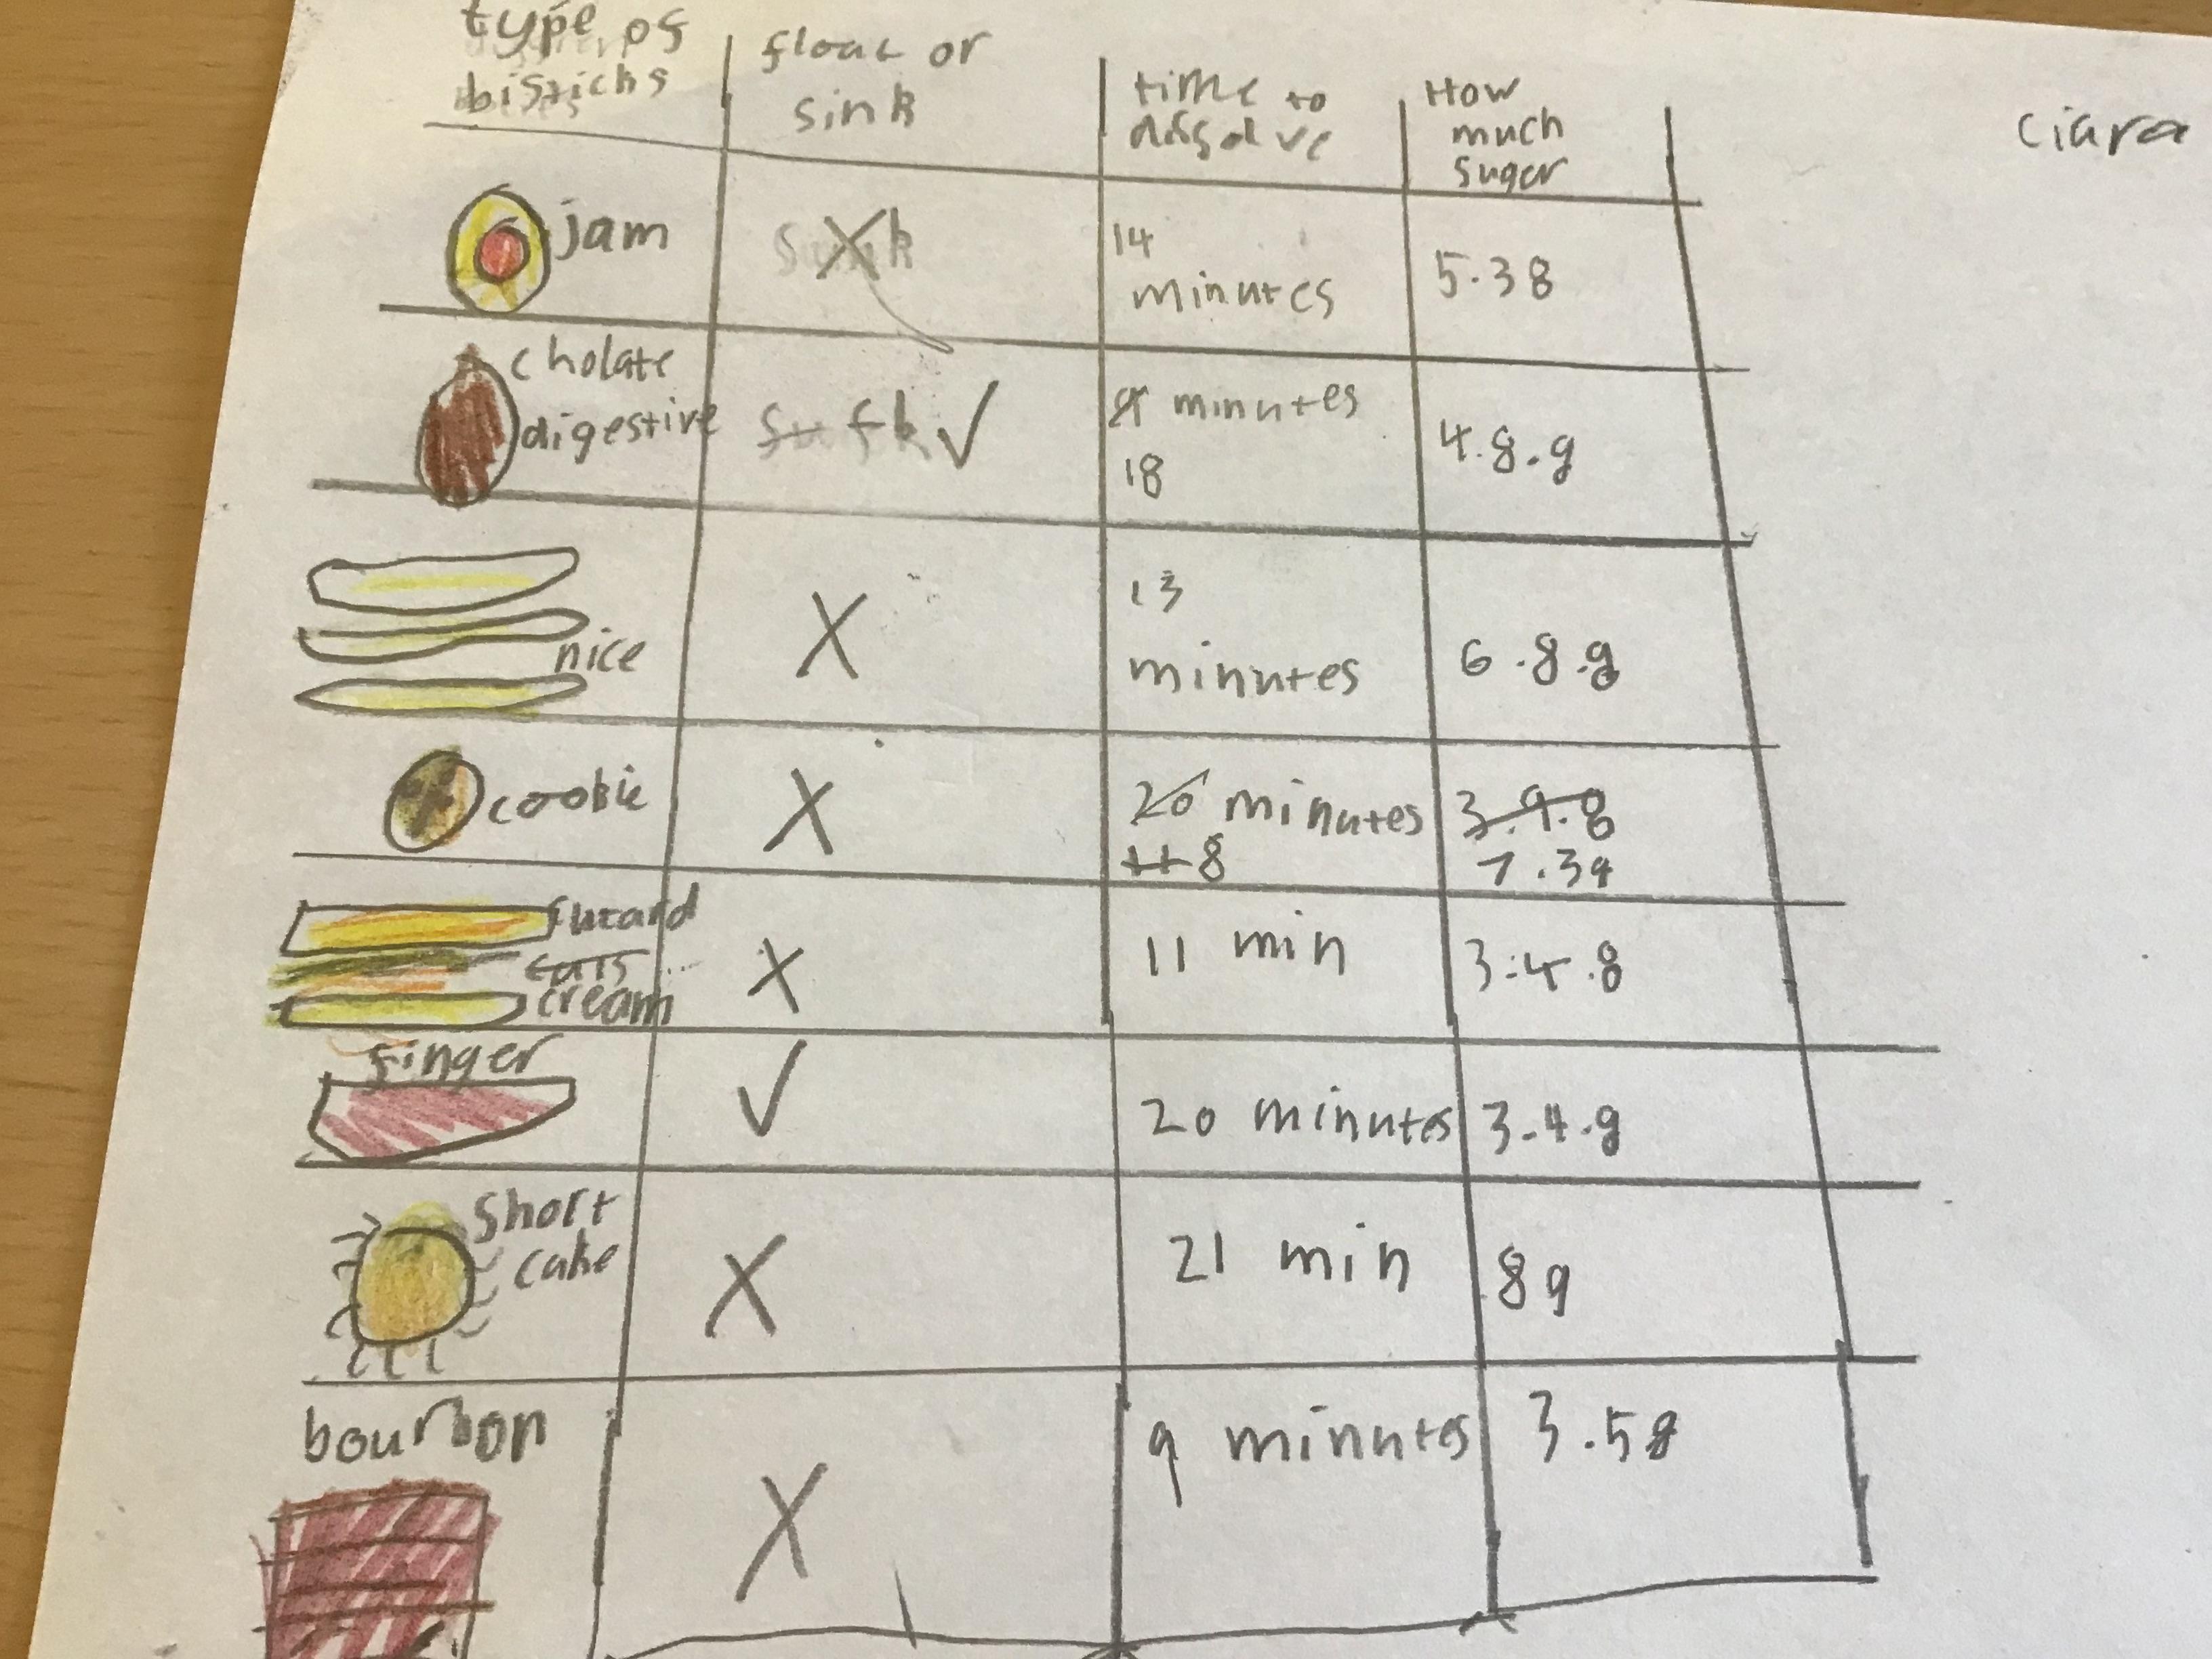 type of
bisticks
float or
sink
time to
dissolve
How
much
suger
ciara
jam
X
14
minutes
5.38
cholate
digestive
✓
minutes
18
4.8.g
nice
X
13
minutes
6.8.g
cookie
X
20 minutes
11 8
3.9.8
7.3g
cream
X
11 min
3.4.8
finger
✓
20 minutes
3.4.g
short
cake
X
21 min
8g
bourbon
X
9 minutes
3.5g